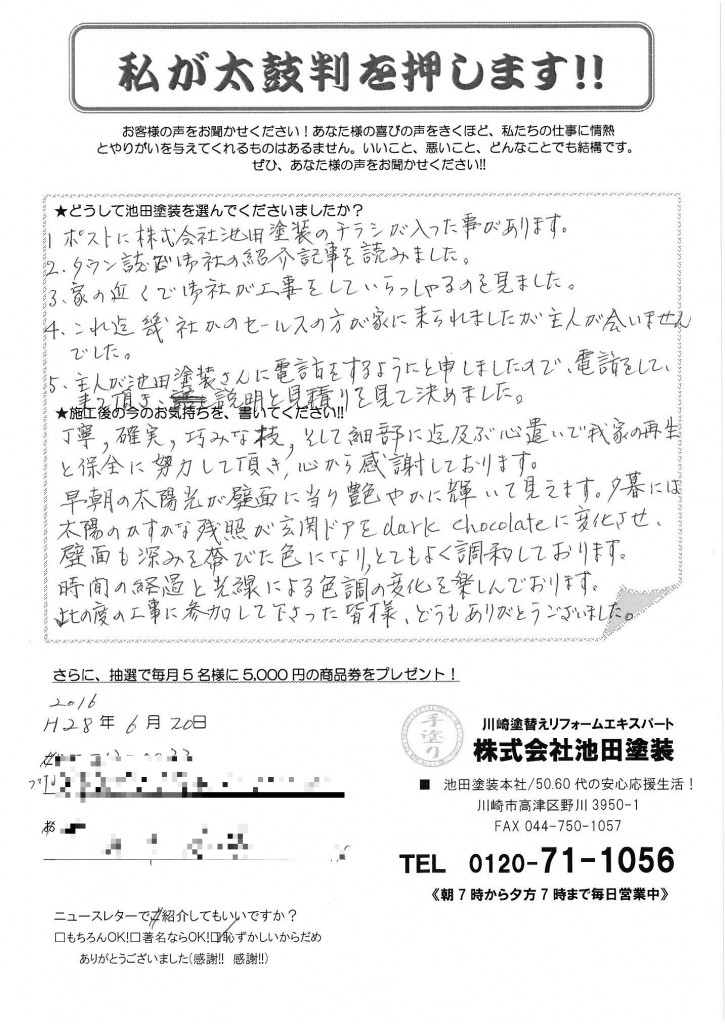 私が太鼓判を押します!!
お客様の声をお聞かせください！あなた様の喜びの声をきくほど、私たちの仕事に情熱
とやりがいを与えてくれるものはあるません。いいこと、悪いこと、どんなことでも結構です。
ぜひ、あなた様の声をお聞かせください!!
★どうして池田塗装を選んでくださいましたか？
1 ポストに株式会社池田塗装のチラシが入った事があります。
2. タウン誌で御社の紹介記事を読みました。
3. 家の近くで御社が工事をしていらっしゃるのを見ました。
4. これ迄幾社かのセールスの方が家に来られましたが主人が会いません
でした。
5. 主人が池田塗装さんに電話をするようにと申しましたので、電話をして、
来て頂き、説明と見積りを見て決めました。
★施工後の今のお気持ちを、書いてください!!
丁寧, 確実, 巧みな技, そして細部に迄及ぶ心遣いで我家の再生
と保全に努力して頂き, 心から感謝しております。
早朝の太陽光が壁面に当り艶やかに輝いて見えます。夕暮には
太陽のかすかな残照が玄関ドアをdark chocolateに変化させ、
壁面も深みを帯びた色になり, とてもよく調和しております。
時間の経過と光線による色調の変化を楽しんでおります。
此の度の工事に参加して下さった皆様、どうもありがとうございました。
さらに、抽選で毎月5名様に5,000円の商品券をプレゼント！
2016
H28年6月20日
手塗り
川崎塗替えリフォームエキスパート
株式会社池田塗装
■ 池田塗装本社/50.60代の安心応援生活！
川崎市高津区野川3950-1
FAX 044-750-1057
TEL 0120-71-1056
《朝7時から夕方7時まで毎日営業中》
ニュースレターでご紹介してもいいですか？
□もちろんOK!□著名ならOK!□恥ずかしいからだめ
ありがとうございました(感謝!! 感謝!!)